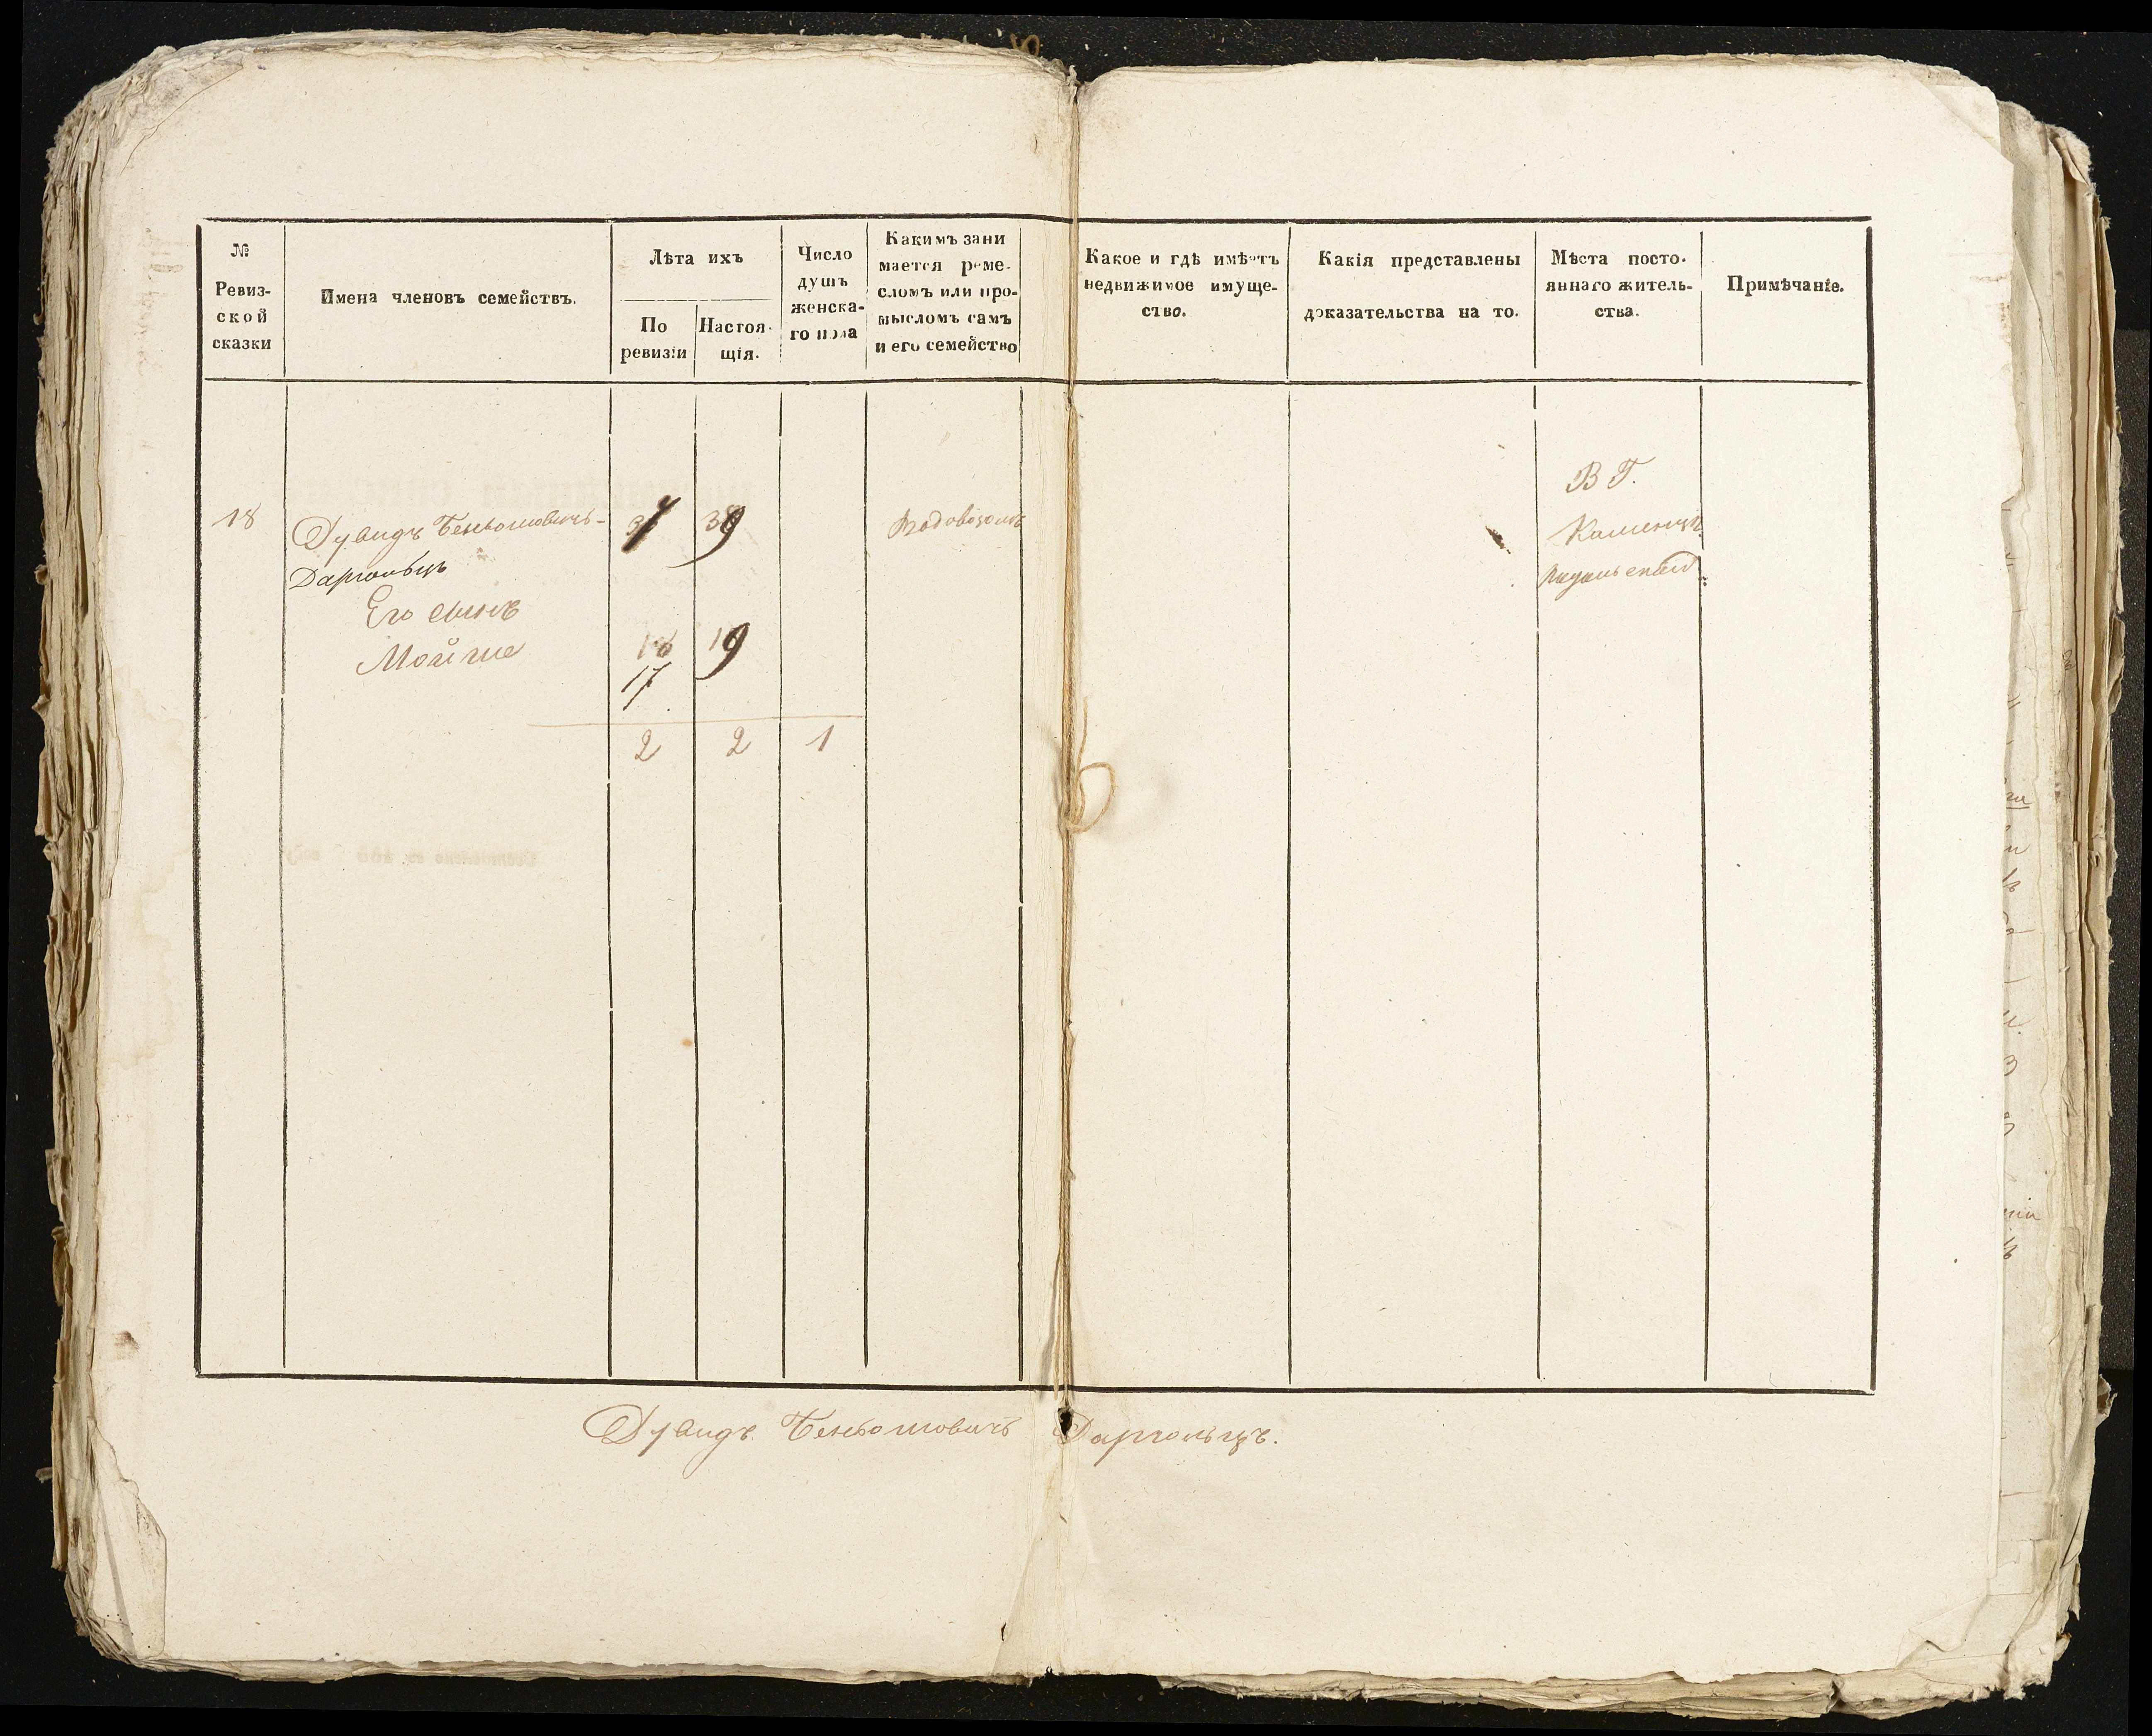 №
Ревиз-
ской
сказки
Имена членовъ семействъ.
Лѣта ихъ
По
ревизіи
Настоя-
щія.
Число
душъ
женска-
го пола
Какимъ зани
мается реме-
сломъ или про-
мысломъ самъ
и его семейство
Какое и гдѣ имѣетъ
недвижимое имуще-
ство.
Какія представлены
доказательства на то.
Мѣста посто-
яннаго житель-
ства.
Примѣчаніе.
18
Дувидъ Беньомовичъ-
Даргольцъ
37
39
Водовозомъ
Его сынъ
Мойше
16
19
17
2 2 1
В Г.
Каменцѣ
Подольскѣ
Дувидъ Беньомовичъ Даргольцъ.